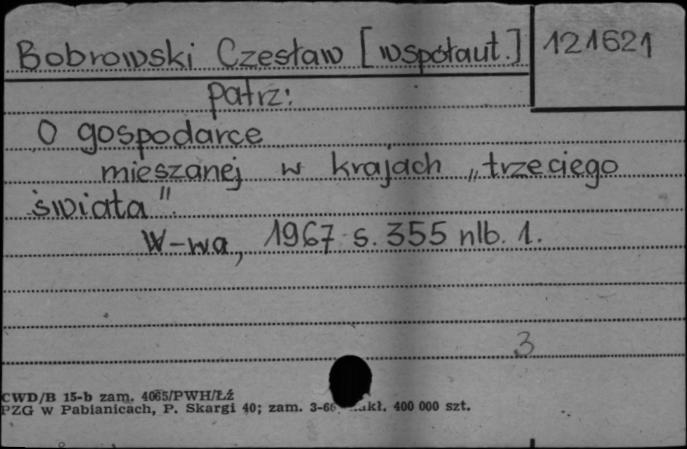 Bobrowski Czesław [współaut.] 121621
patrz:
O gospodarce
mieszanej w krajach „trzeciego
świata".
W-wa, 1967 s. 355 nlb. 1.
3
CWD/B 15-b zam. 4065/PWH/Łź
PZG w Pabianicach, P. Skargi 40; zam. 3-66 nakł. 400 000 szt.